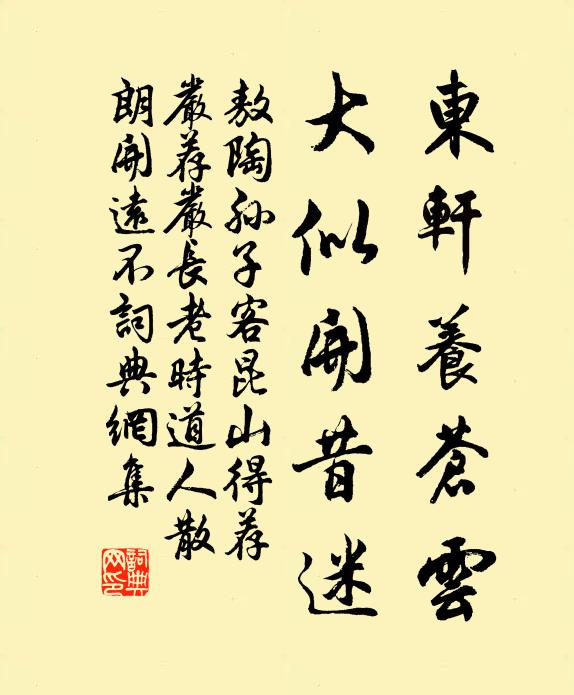 東軒養蒼雲
大似開昔迷
敖陶孙子客昆山得荐
嚴荐嚴長老時道人散
朗開遠不詞典網集
詞典网印